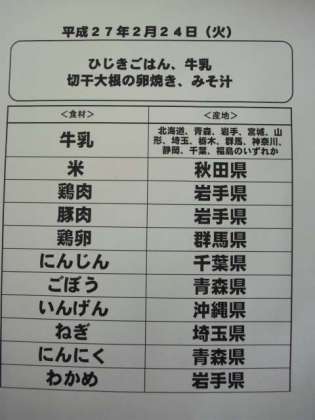 平成27年2月24日（火）
ひじきごはん、牛乳
切干大根の卵焼き、みそ汁
＜食材＞ ＜産地＞
牛乳 北海道、青森、岩手、宮城、山
形、埼玉、栃木、群馬、神奈川、
静岡、千葉、福島のいずれか
米 秋田県
鶏肉 岩手県
豚肉 岩手県
鶏卵 群馬県
にんじん 千葉県
ごぼう 青森県
いんげん 沖縄県
ねぎ 埼玉県
にんにく 青森県
わかめ 岩手県